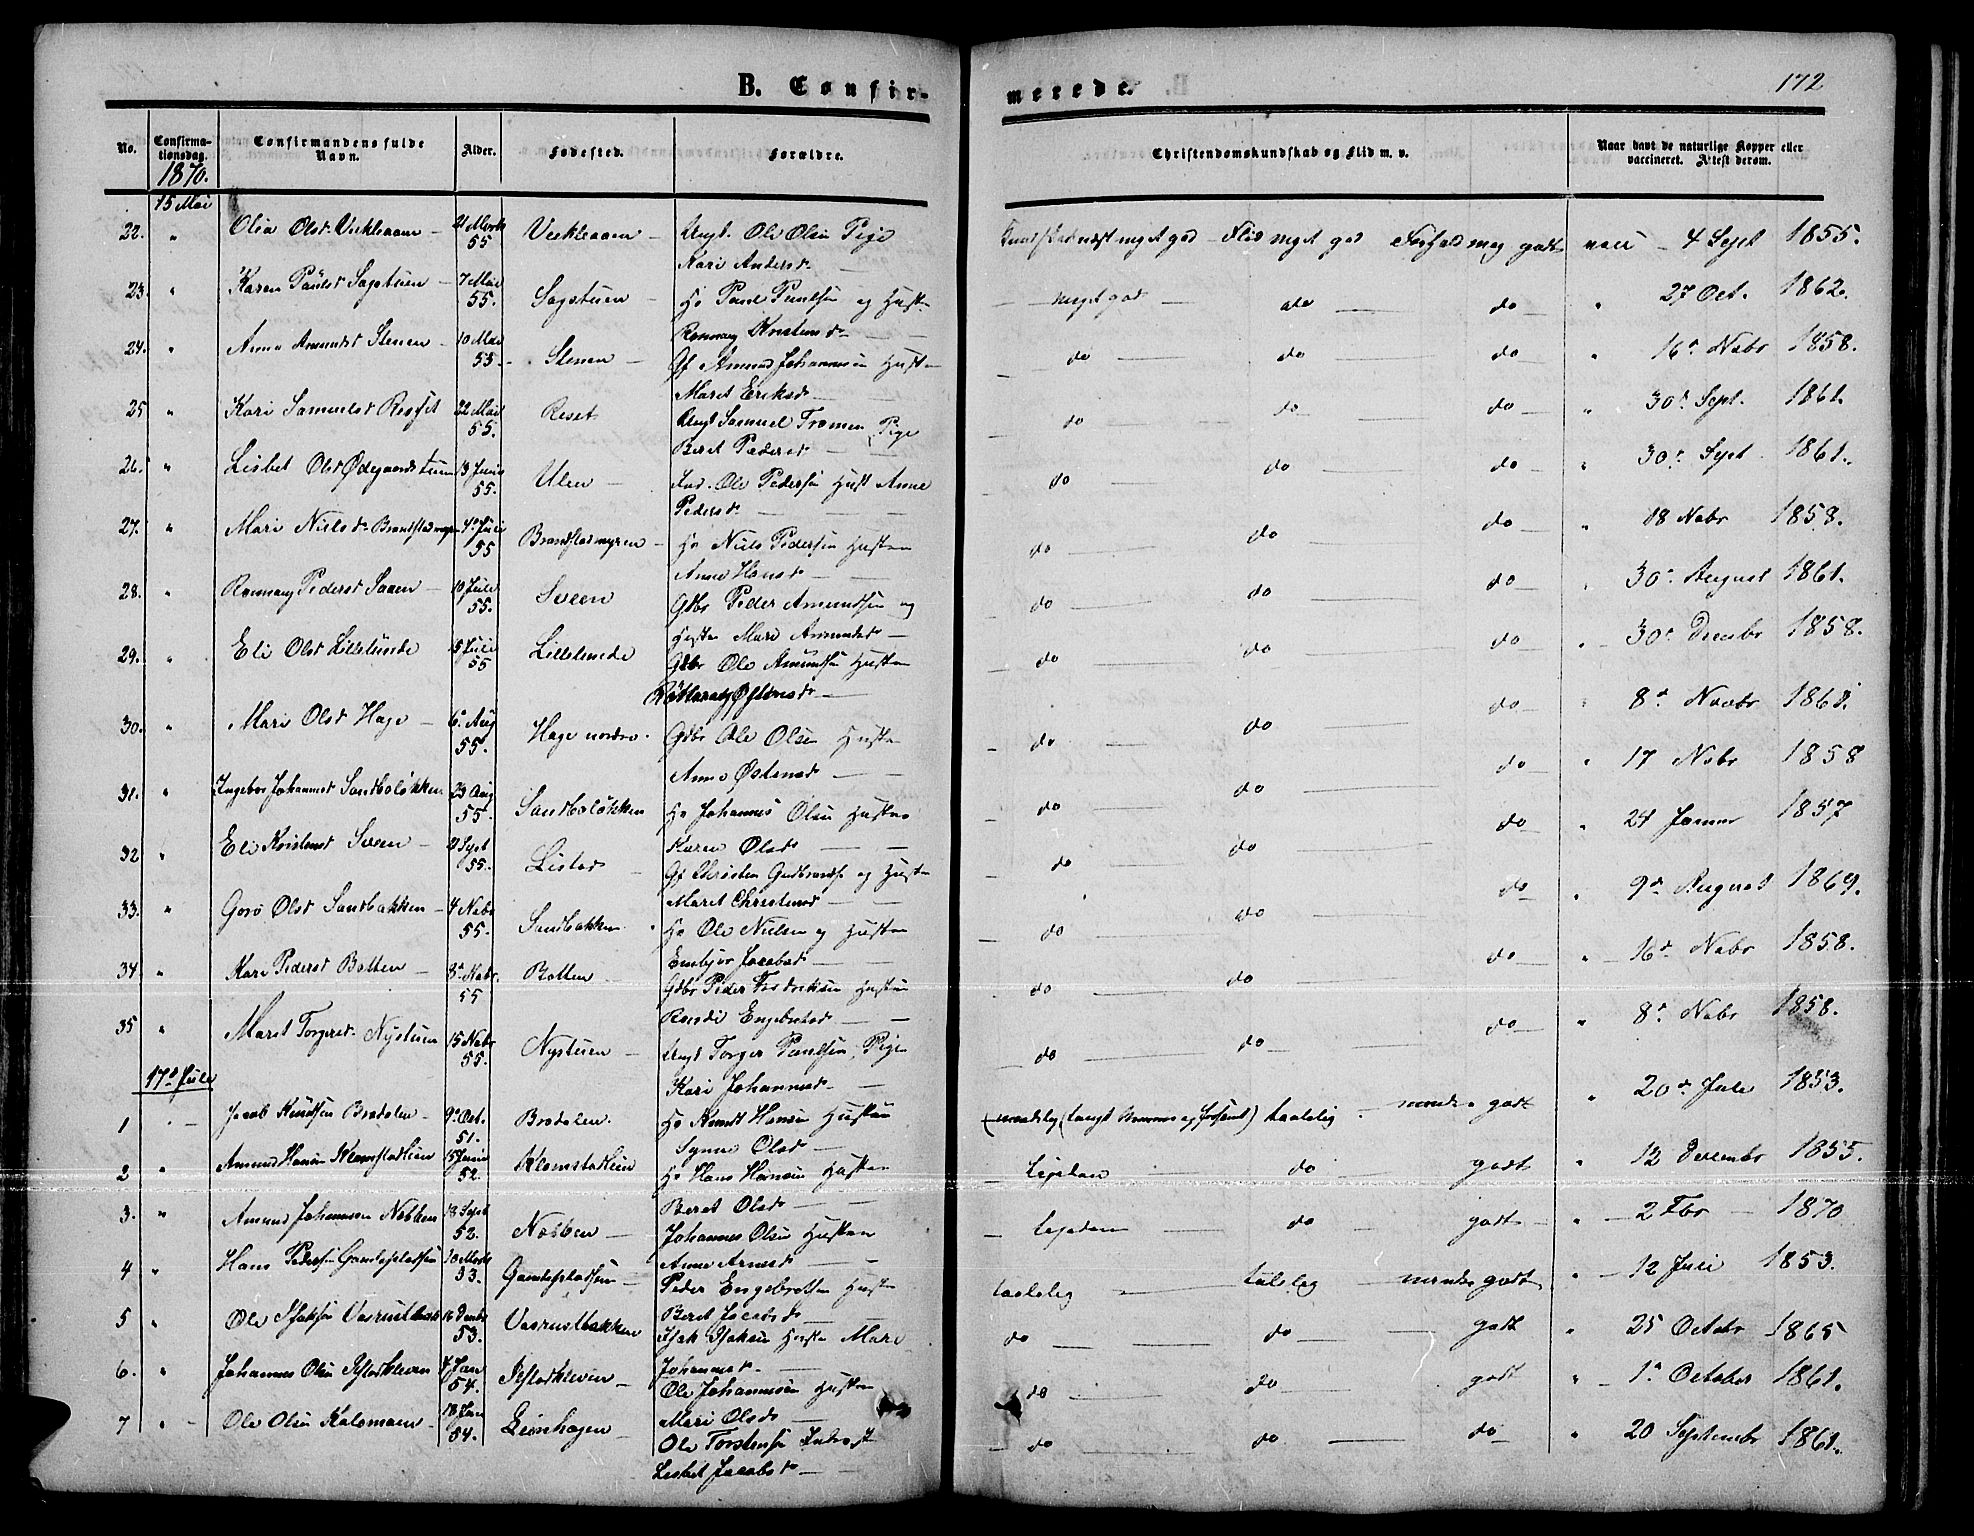 B. Confir-
merede.
172
No.
Confirma-
tionsdag.
Confirmandens fulde
Navn.
Alder.
Fødested.
Forældre.
Christendomskundskab og Flid m. v.
Naar havt de naturlige Kopper eller
vaccineret. Attest derom.
1870.
15 Mai
22. " Olia Olsd. 21 Marts 55 Ungk. Ole Olsen Pige
Kari Andersd. Flid meget god Forhold meg godt vacc 4 Sept 1855.
23. " Karen Paulsd Sagstuen 7 Mai 55. Sagstuen Ho Paul Paulsen og Hust.
Ronnaug Kristensd. meget god do do " 27 Oct. 1862.
24. " Anne Amundsd Stenen 10 Mai 55. Stenen Gf Amund Johannesen Hustru
Maret Eriksd. do do do " 16d Novbr 1858.
25 " Kari Samuelsd Resset 22 Mai 55. Reset Ungk Samuel Pige
Beret Pedersd. do do do " 30d Sept. 1861.
26. " Lisbet Olsd Ødegaardstuen 13 Juni 55. Ulen Ole Pedersen Hust Anne
Pedersd. do do do " 30d Sept 1861.
27. " Mari Nielsd. Brandstadmyren 4d Juli 55 Brandstadmyren Ho Niels Pedersen Hustru
Anne Hansd. do do do " 18 Nobr 1858.
28. " Ronnaug Pedersd 10 Juli 55. Sveen Gdbr Peder Amundsen og
Hustru Mari Amundsd. do do do " 30d August 1861.
29. " Eli Olsd Lillelunde 15 Juli 55 Lillelunde Gdbr Ole Amundsen Hustru
Østensd. do do do " 30d Decmbr 1858.
30. " Mari Olsd Hage 6d Aug 55. Hage nordre Gdbr Ole Olsen Hustru
Anne Østensd. do do do " 8d Novbr 1861.
31. " Ingebor Johannesd Sandboløkken 23 Aug 55. Sandboløkken Ho Johannes Olsen Hustru
Karen Olsd. do do do " 17 Nobr 1858
32 " Eli Kristensd Sveen 21 Sept 55. Listad Gf Christen Gudbrands og Hustru
Maret Christensd. do do do " 24 Januar 1857
33. " Goro Olsd Sandbakken 4 Nobr 55. Sandbakken Ho Ole Nielsen og Hustru
Jacobsd. do do do " 9d August 1869.
34. " Kari Pedersd Botten 8d Nobr. 55 Botten Gdbr Peder Fredriksen Hustru
Engebretsd. do do do " 16d Nobr 1858.
35 " Maret Torgersd. Nystuen 15 Nobr 55. Nystuen Ungk Torger Paulsen, Pige
Kari Johannesd. do do do " 8d Nobr 1858.
17d Juli
1 Jacob Knudsen Brodalen 9d Oct. 51. Brodalen Ho Knudt Hansen Hustru
Synne Olsd. taalelig mindre godt " 20d Juli 1853.
2 " Amund Hansen Klomstadlien 15 Juni 52. Klomstadlien Ho Hans Hansen Hustru
Beret Olsd. Ligedan do godt " 12 Decembr 1855.
3. " Amund Johannesen Nobben 18 Sept 52. Nobben Johannes Olsen Hustru
Anne Arnesd. Ligedan do godt " 2 Fbr 1870
4 " Hans Pedersen 10 Marts 53. Peder Engebretsen Hustru
Beret Jacobsd. taalelig talelig mindre godt " 12 Juli 1853.
5 " Ole Isaksen 16 Decbr 53. Isak Isaksen Hustru Mari
Johannesd. do do godt " 25 Octobr 1865
6. " Johannes Olsen 7 Jan 54. Ole Johannesen Hustru
Mari Olsd. do do godt " 1d October 1861.
7 " Ole Olsen 18 Jan 54. Ole Torstensen
Lisbet Jacobsd. do do do " 20 Septembr 1861.